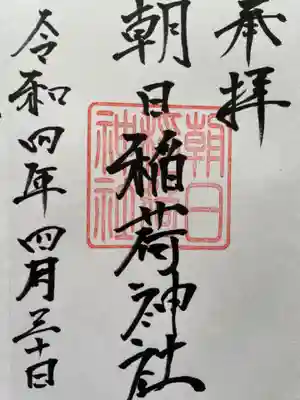 奉拝
朝日稲荷神社
朝日稲荷神社
令和四年四月三十日